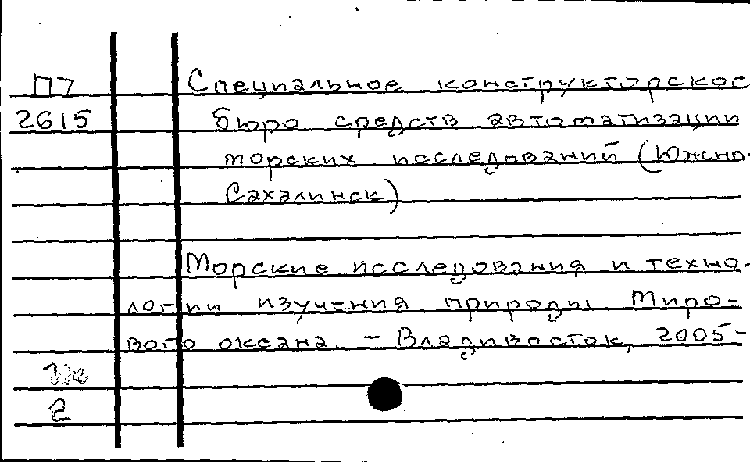 П7
2615
Специальное конструкторское
бюро средств автоматизации
морских исследований (Южно-
Сахалинск)
Морские исследования и техно-
логии изучения природы Миро-
вого океана. – Владивосток, 2005-
2